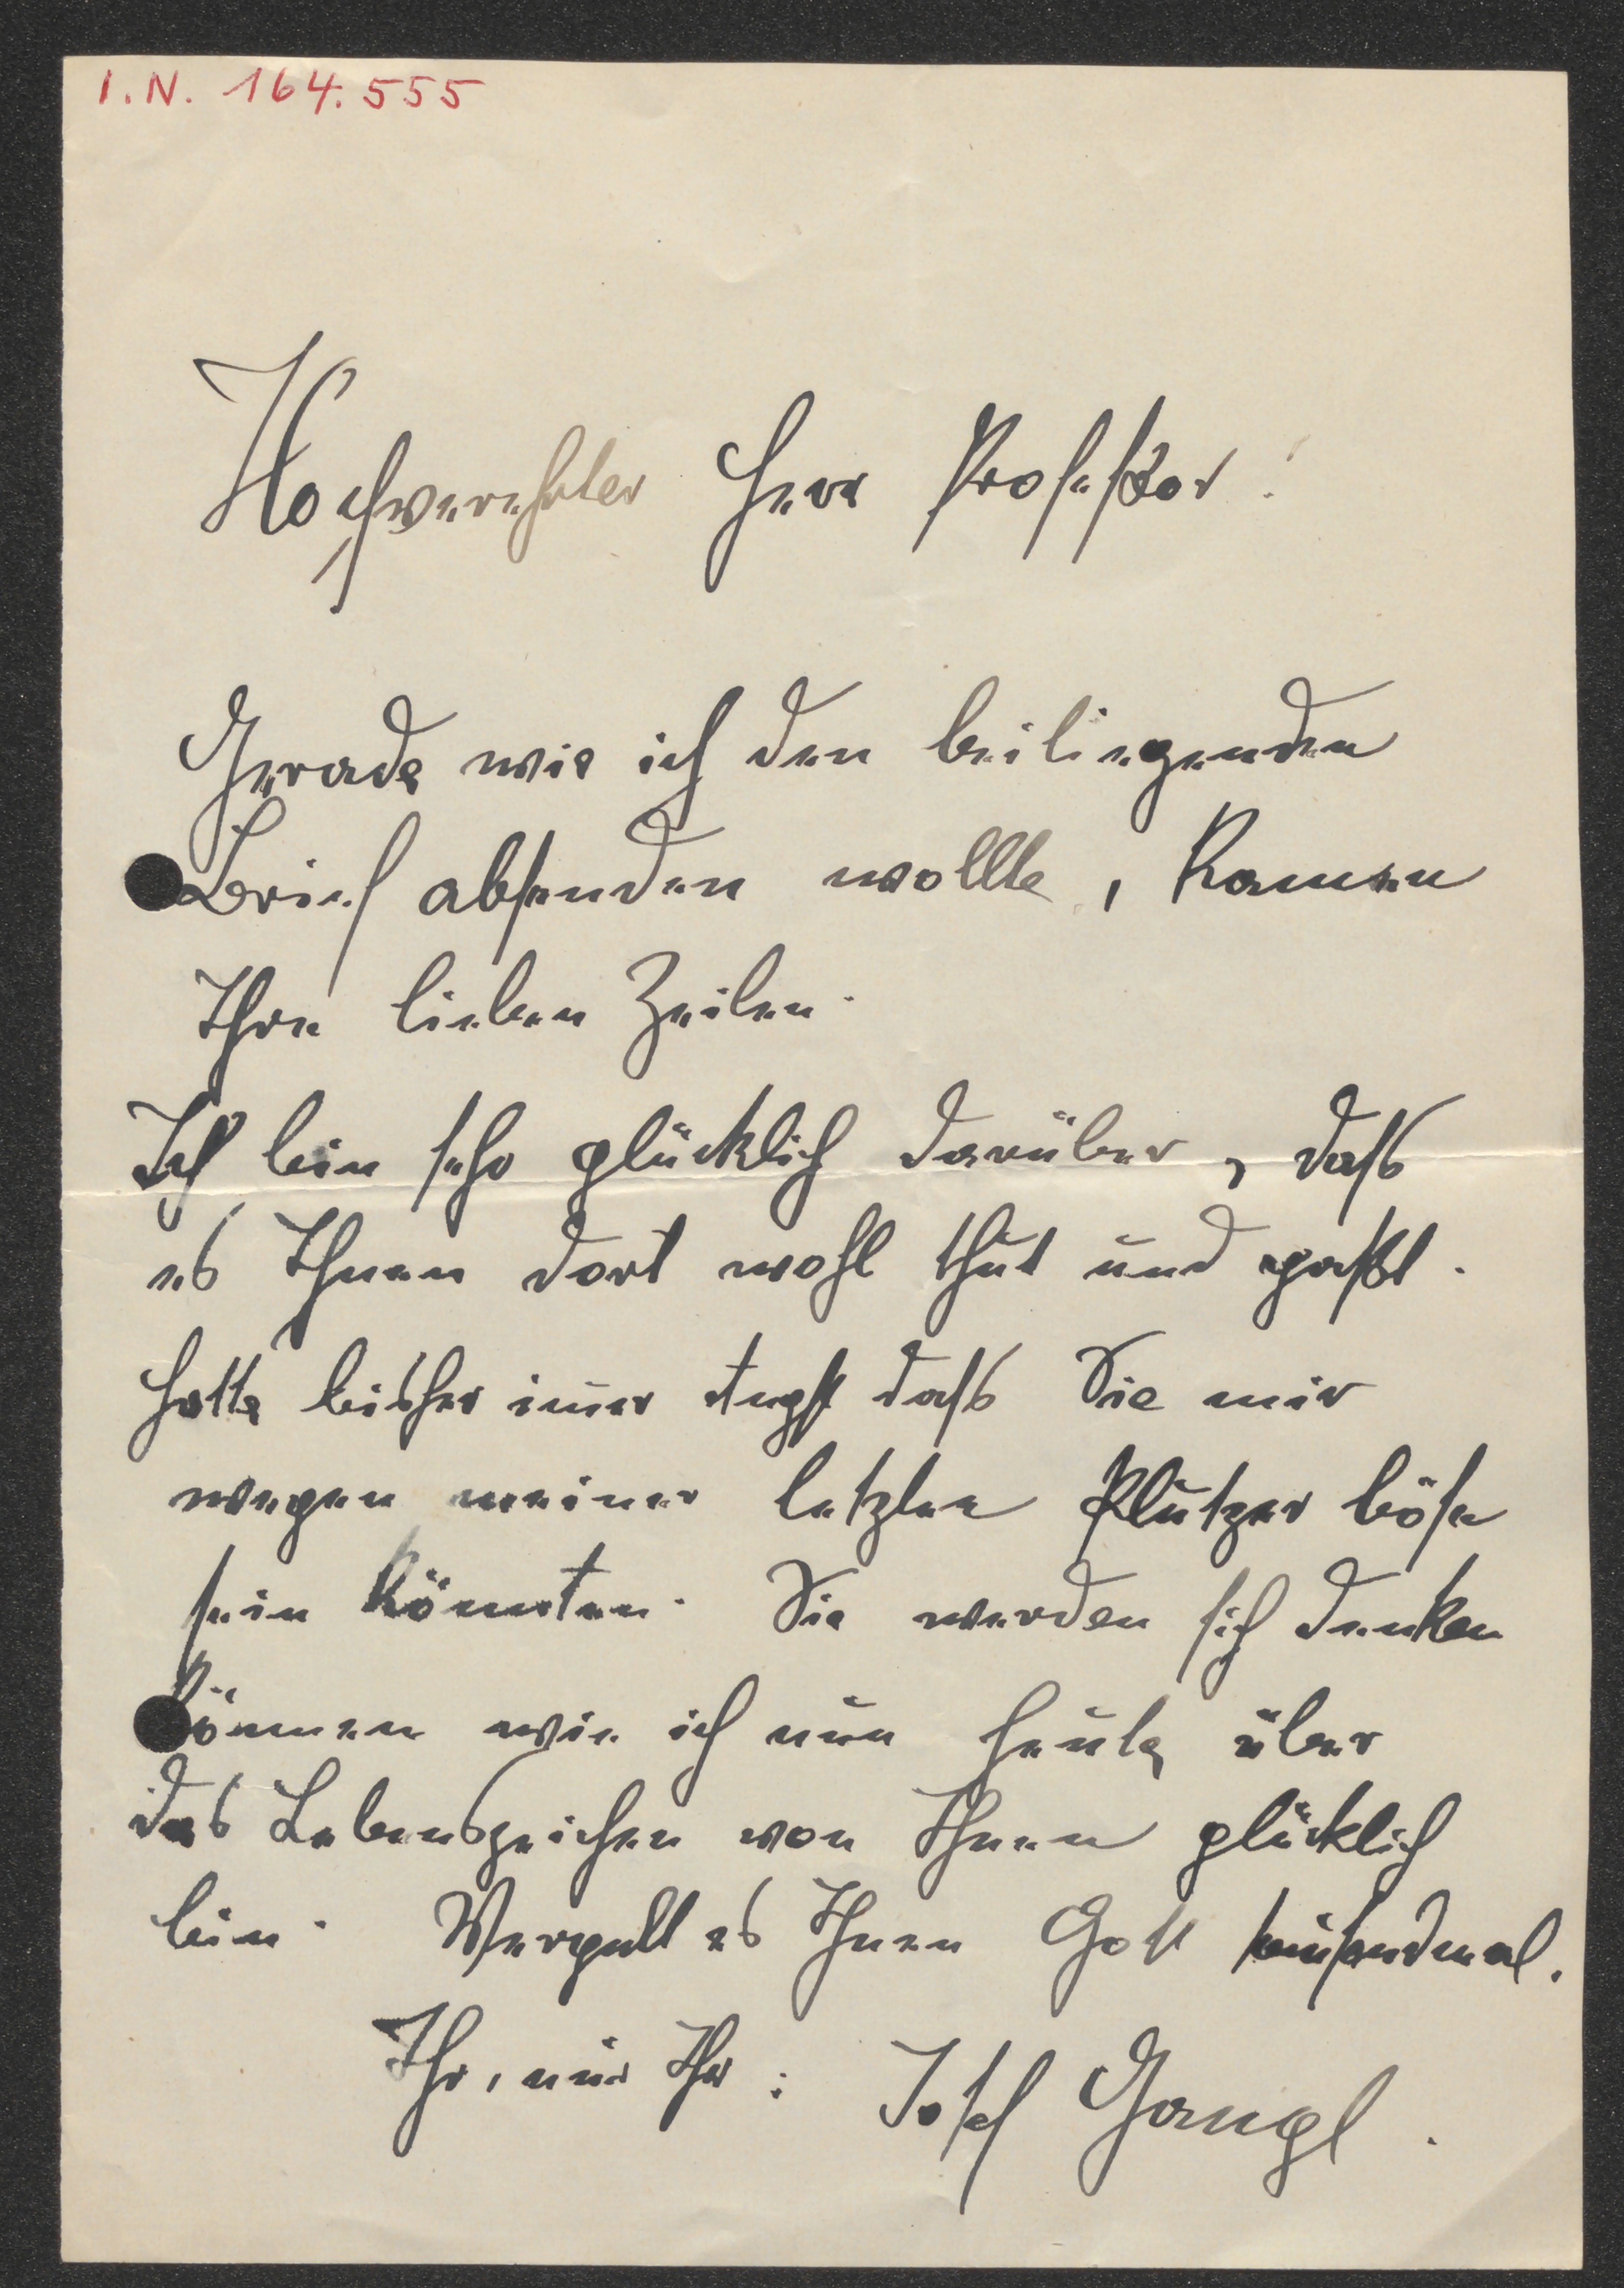 I.N. 164.555
Hochverehrter Herr Professor!
Gerade wie ich den beiliegenden
Brief absenden wollte, kamen
Ihre lieben Zeilen.
Ich bin sehr glücklich darüber, daß
es Ihnen dort wohl thut und paßt.
Hatte bisher im̄er Angst daß Sie mir
wegen meiner letzten Plutzer böse
sein könnten. Sie werden sich denken
können wie ich nun heute über
das Lebenszeichen von Ihnen glücklich
bin. Vergelt es Ihnen Gott tausendmal.
Ihr, nur Ihr: Josef Gangl.